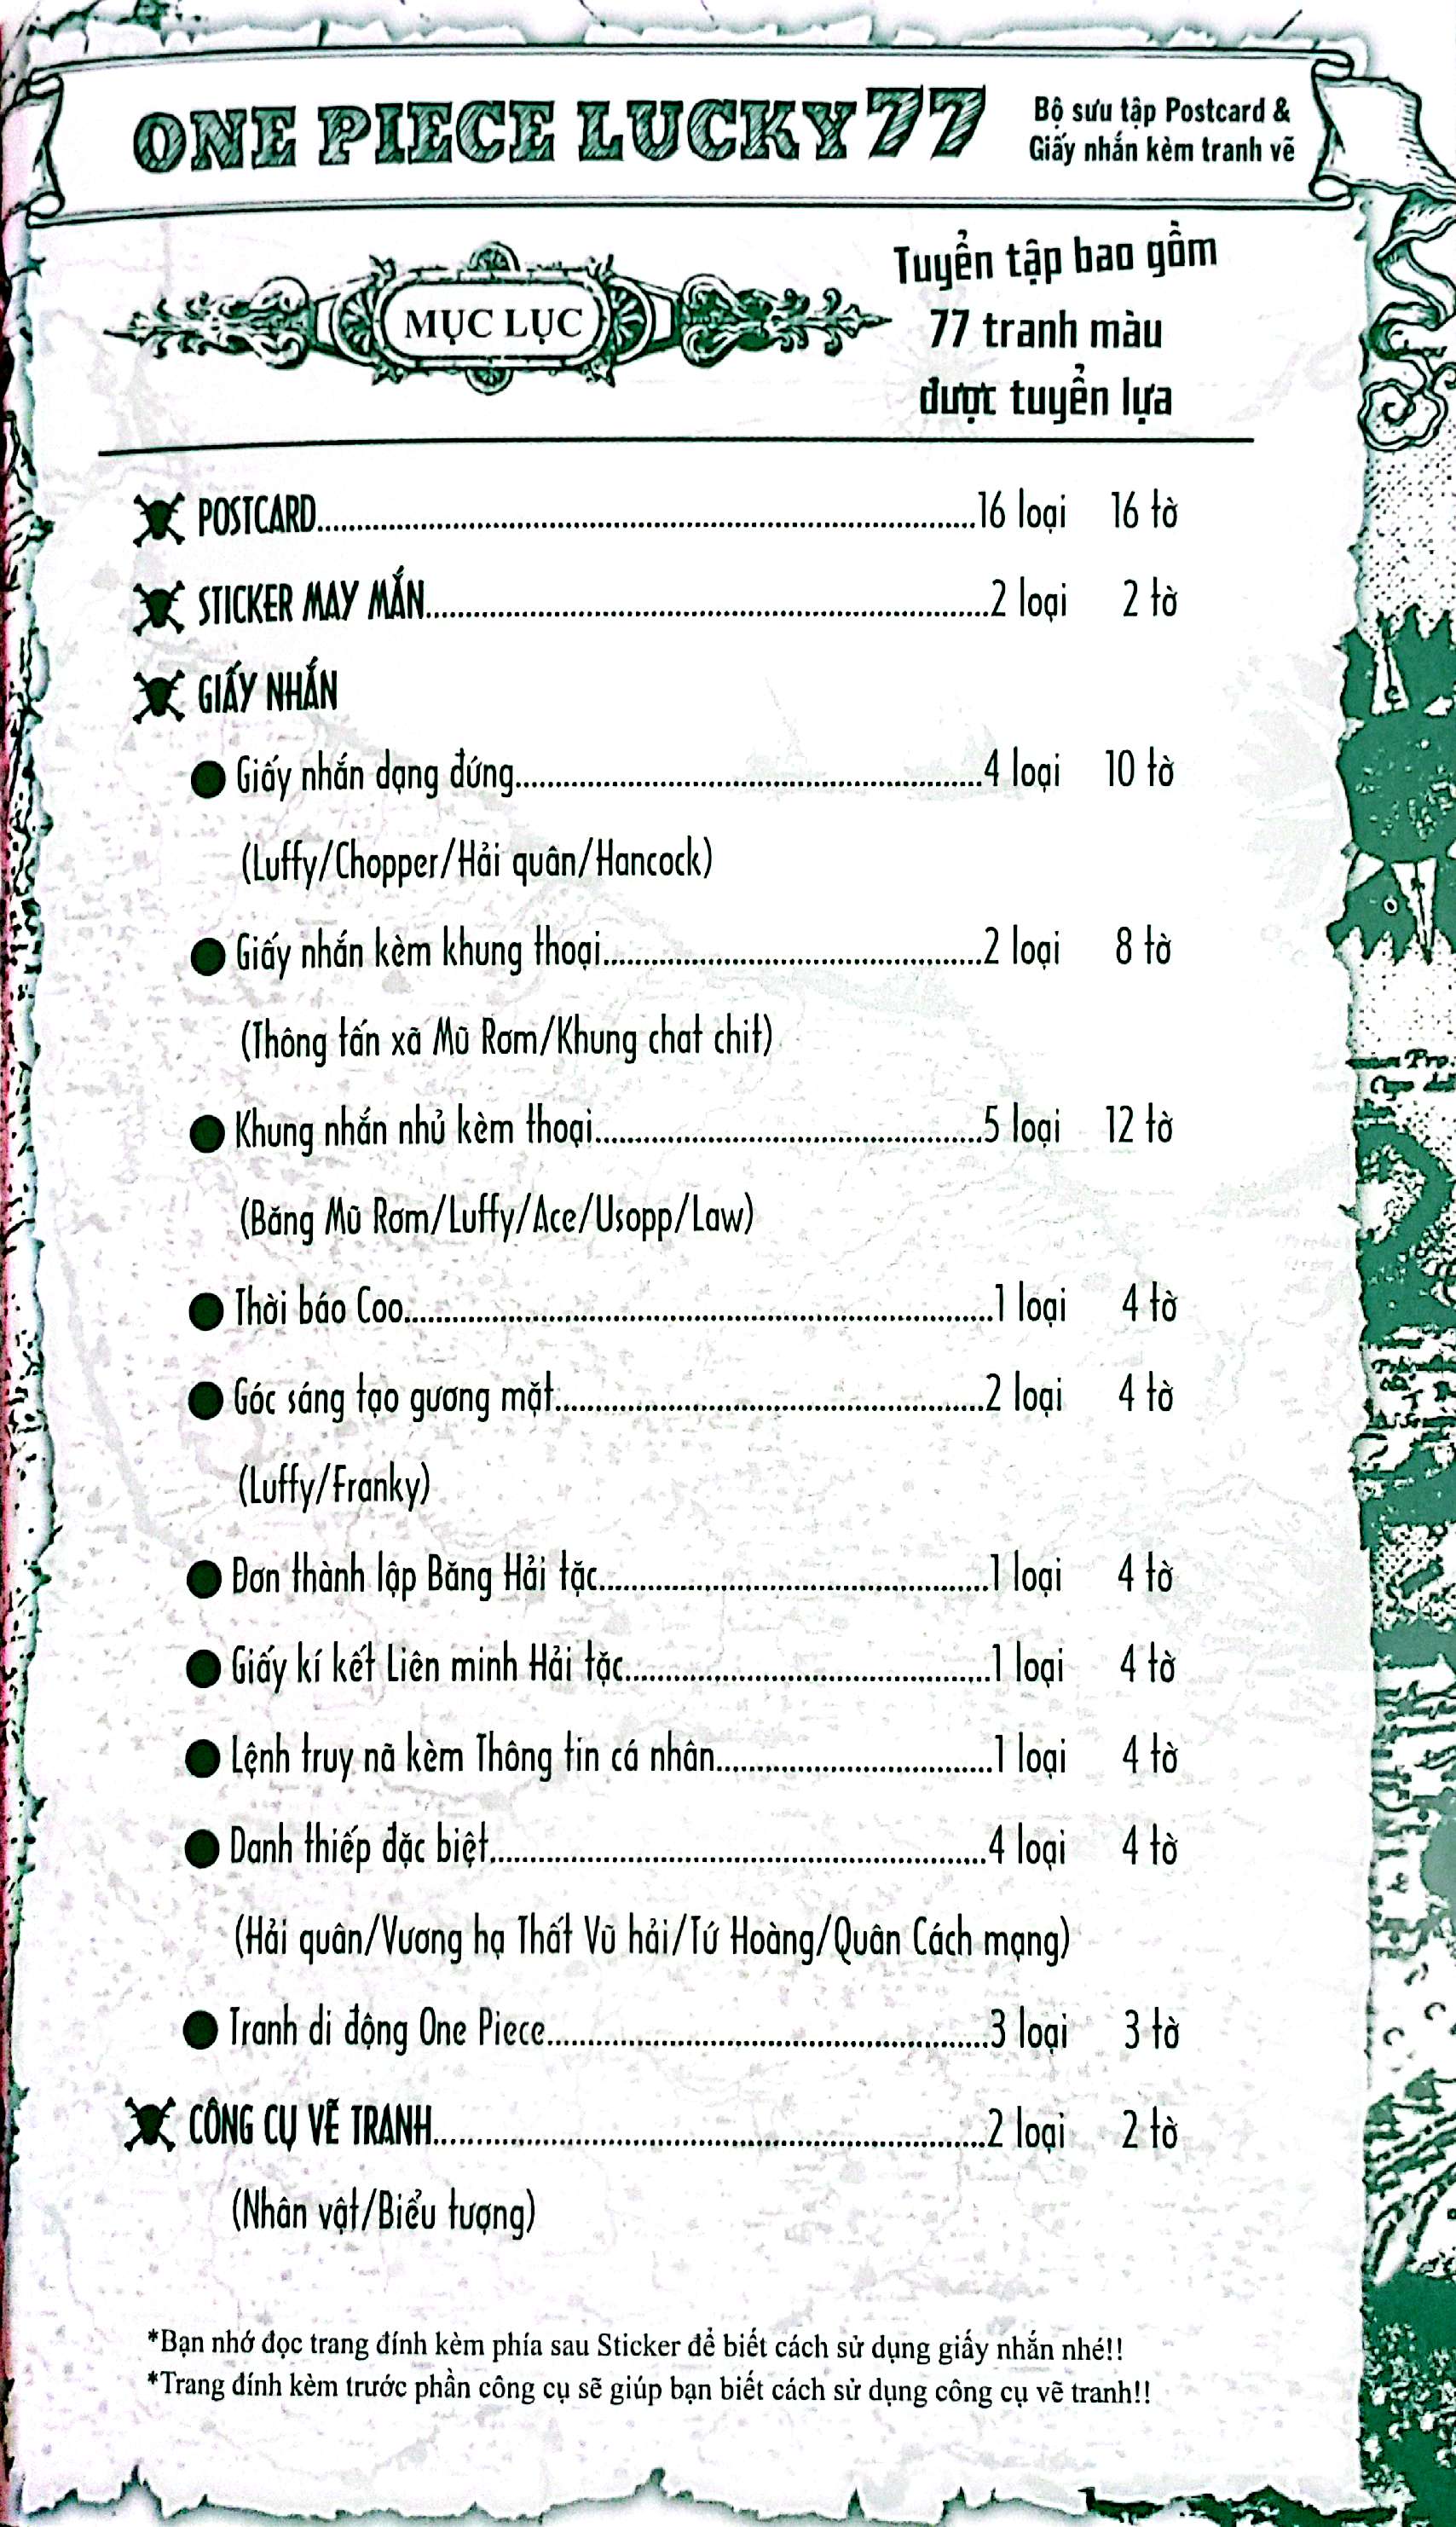 ONE PIECE LUCKY 77
Bộ sưu tập Postcard &
Giấy nhắn kèm tranh vẽ
MỤC LỤC
Tuyển tập bao gồm
77 tranh màu
được tuyển lựa
POSTCARD.....16 loại 16 tờ
STICKER MAY MẮN.....2 loại 2 tờ
GIẤY NHẮN
Giấy nhắn dạng đứng.....4 loại 10 tờ
(Luffy/Chopper/Hải quân/Hancock)
Giấy nhắn kèm khung thoại.....2 loại 8 tờ
(Thông tấn xã Mũ Rơm/Khung chat chit)
Khung nhắn nhủ kèm thoại.....5 loại 12 tờ
(Băng Mũ Rơm/Luffy/Ace/Usopp/Law)
Thời báo Coo.....1 loại 4 tờ
Góc sáng tạo gương mặt.....2 loại 4 tờ
(Luffy/Franky)
Đơn thành lập Băng Hải tặc.....1 loại 4 tờ
Giấy kí kết Liên minh Hải tặc.....1 loại 4 tờ
Lệnh truy nã kèm Thông tin cá nhân.....1 loại 4 tờ
Danh thiếp đặc biệt.....4 loại 4 tờ
(Hải quân/Vương hạ Thất Vũ hải/Tứ Hoàng/Quân Cách mạng)
Tranh di động One Piece.....3 loại 3 tờ
CÔNG CỤ VẼ TRANH.....2 loại 2 tờ
(Nhân vật/Biểu tượng)
*Bạn nhớ đọc trang đính kèm phía sau Sticker để biết cách sử dụng giấy nhắn nhé!!
*Trang đính kèm trước phần công cụ sẽ giúp bạn biết cách sử dụng công cụ vẽ tranh!!